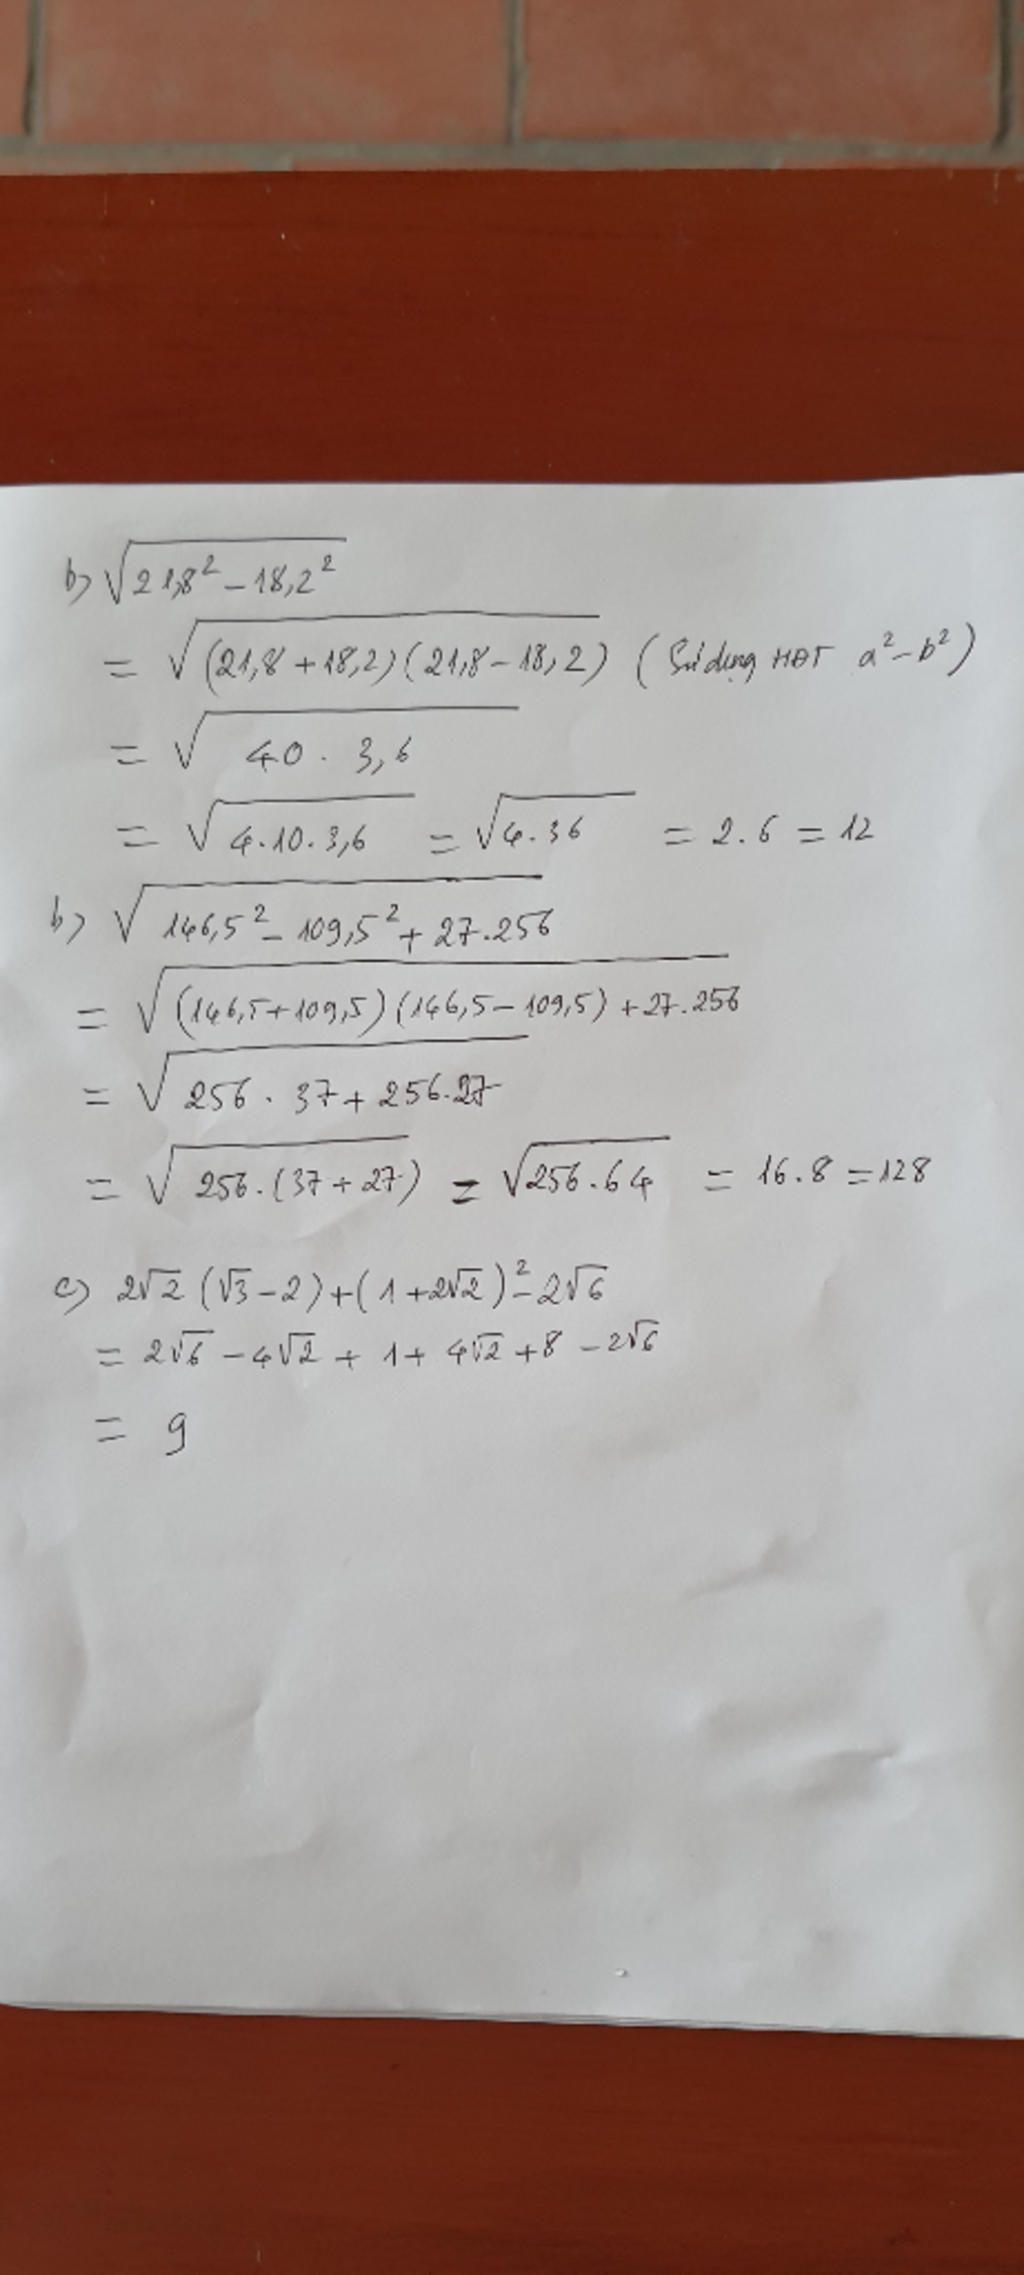 b) √(21,8² - 18,2²)
= √((21,8 + 18,2)(21,8 - 18,2)) (Sử dụng HĐT a² - b²)
= √(40 . 3,6)
= √(4.10.3,6) = √(4.36) = 2.6 = 12
b) √(146,5² - 109,5² + 27.256)
= √((146,5 + 109,5)(146,5 - 109,5) + 27.256)
= √(256 . 37 + 256.27)
= √(256.(37 + 27)) = √(256.64) = 16.8 = 128
c) 2√2 (√3 - 2) + (1 + 2√2)² - 2√6
= 2√6 - 4√2 + 1 + 4√2 + 8 - 2√6
= 9